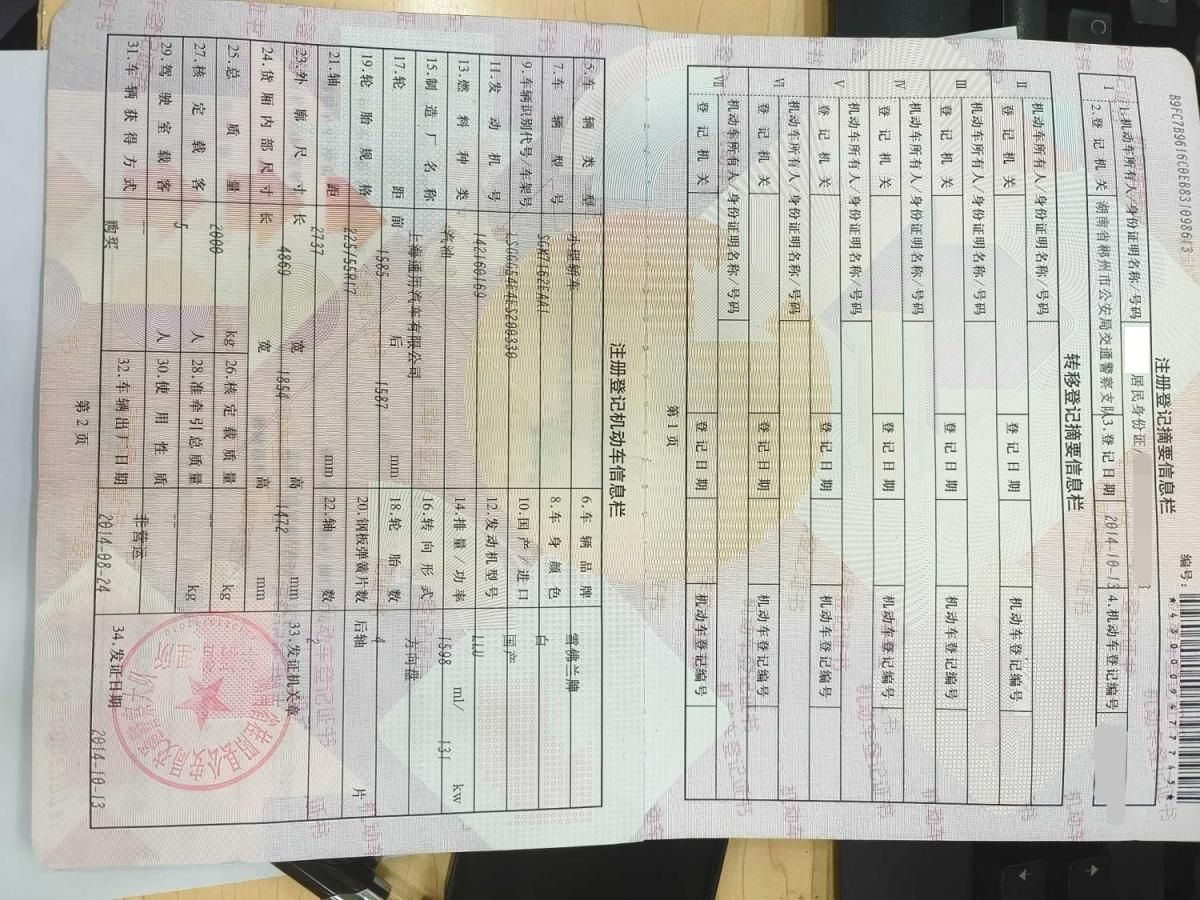 B9FC7B9616C0EB831098613
编号:
*430009477745*
注册登记摘要信息栏
Ⅰ 1.机动车所有人/身份证明名称/号码 居民身份证/ 3
2.登记机关 湖南省郴州市公安局交通警察支队 3.登记日期 2014-10-13 4.机动车登记编号
转移登记摘要信息栏
Ⅱ 机动车所有人/身份证明名称/号码
登记机关 登记日期 机动车登记编号
Ⅲ 机动车所有人/身份证明名称/号码
登记机关 登记日期 机动车登记编号
Ⅳ 机动车所有人/身份证明名称/号码
登记机关 登记日期 机动车登记编号
Ⅴ 机动车所有人/身份证明名称/号码
登记机关 登记日期 机动车登记编号
Ⅵ 机动车所有人/身份证明名称/号码
登记机关 登记日期 机动车登记编号
Ⅶ 机动车所有人/身份证明名称/号码
登记机关 登记日期 机动车登记编号
第1页
注册登记机动车信息栏
5.车辆类型 小型轿车 6.车辆品牌 雪佛兰牌
7.车辆型号 SGM7162EAA1 8.车身颜色 白
9.车辆识别代号/车架号 LSGGG54E4ES200330 10.国产/进口 国产
11.发动机号 142160169 12.发动机型号 LLU
13.燃料种类 汽油 14.排量/功率 1598 ml/ 131 kw
15.制造厂名称 上海通用汽车有限公司 16.转向形式 方向盘
17.轮距 前 1585 后 1587 mm 18.轮胎数 4
19.轮胎规格 225/55R17 20.钢板弹簧片数 后轴 片
21.轴距 2737 mm 22.轴数 2
23.外廓尺寸 长 4869 宽 1854 高 1472 mm 33.发证机关章
24.货厢内部尺寸 长 宽 高 mm
25.总质量 2000 kg 26.核定载质量 -- kg
27.核定载客 5 人 28.准牵引总质量 -- kg
29.驾驶室载客 -- 人 30.使用性质 非营运
31.车辆获得方式 购买 32.车辆出厂日期 2014-08-24 34.发证日期 2014-10-13
第2页